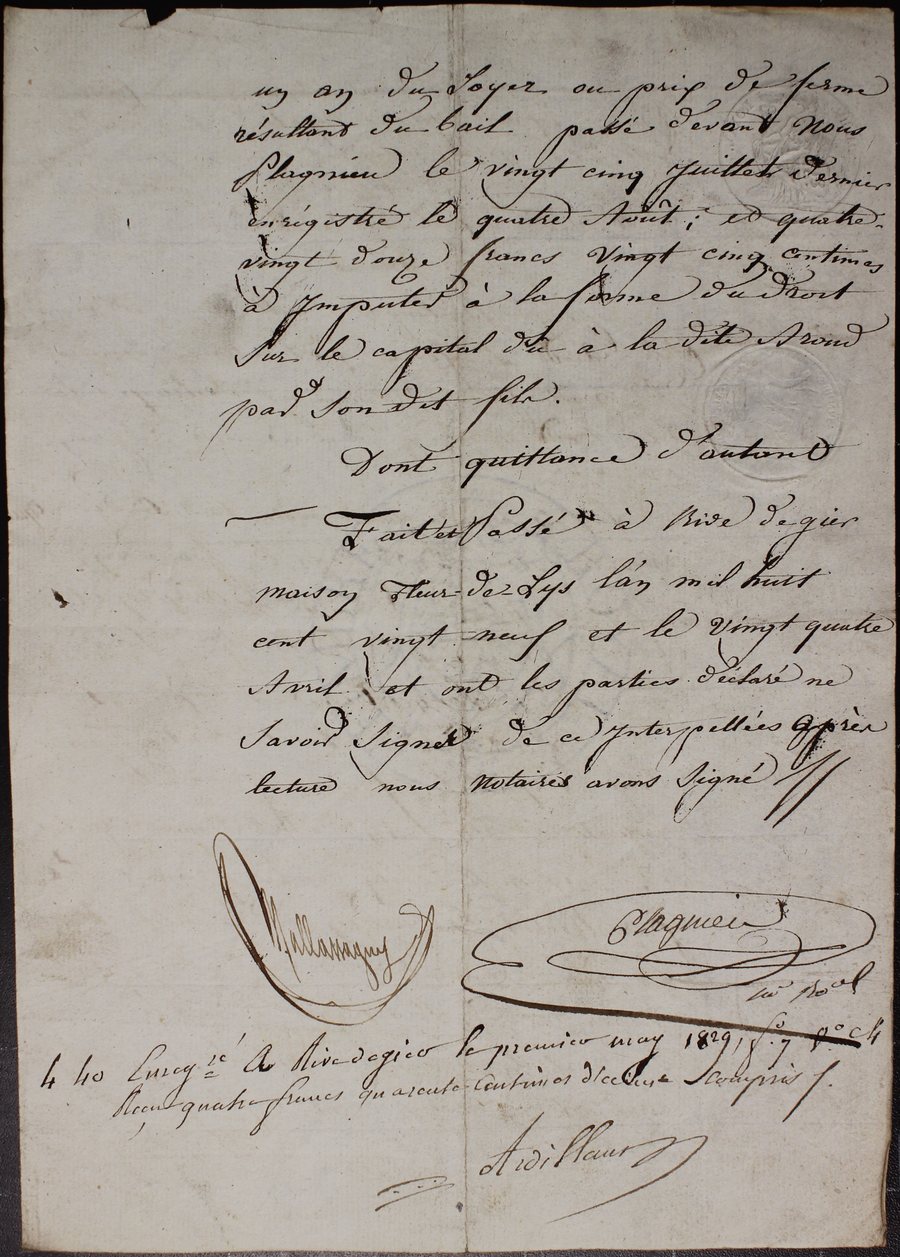 un an du Loyer ou prix de ferme
résultant du bail passé devant Nous
Plagnieu le vingt cinq Juillet dernier
enrégistré le quatre Août; et quatre-
vingt douze francs Vingt cinq centimes
à Imputer à la forme du droit
sur le capital dû à la dite Aroud
par son dit fils.
Dont quittance d'autant
Fait et Passé à Rive de gier
maison Fleur-de-Lys l'an mil huit
cent vingt neuf et le Vingt quatre
Avril et ont les parties déclaré ne
savoir signer de ce Interpellées après
lecture nous Notaires avons signé //
Plagnieu
4 40 Enreg.ré A Rive de gier le premier may 1829, f.o 7 V.o C 4
Recu quatre francs quarante Centimes décime compris